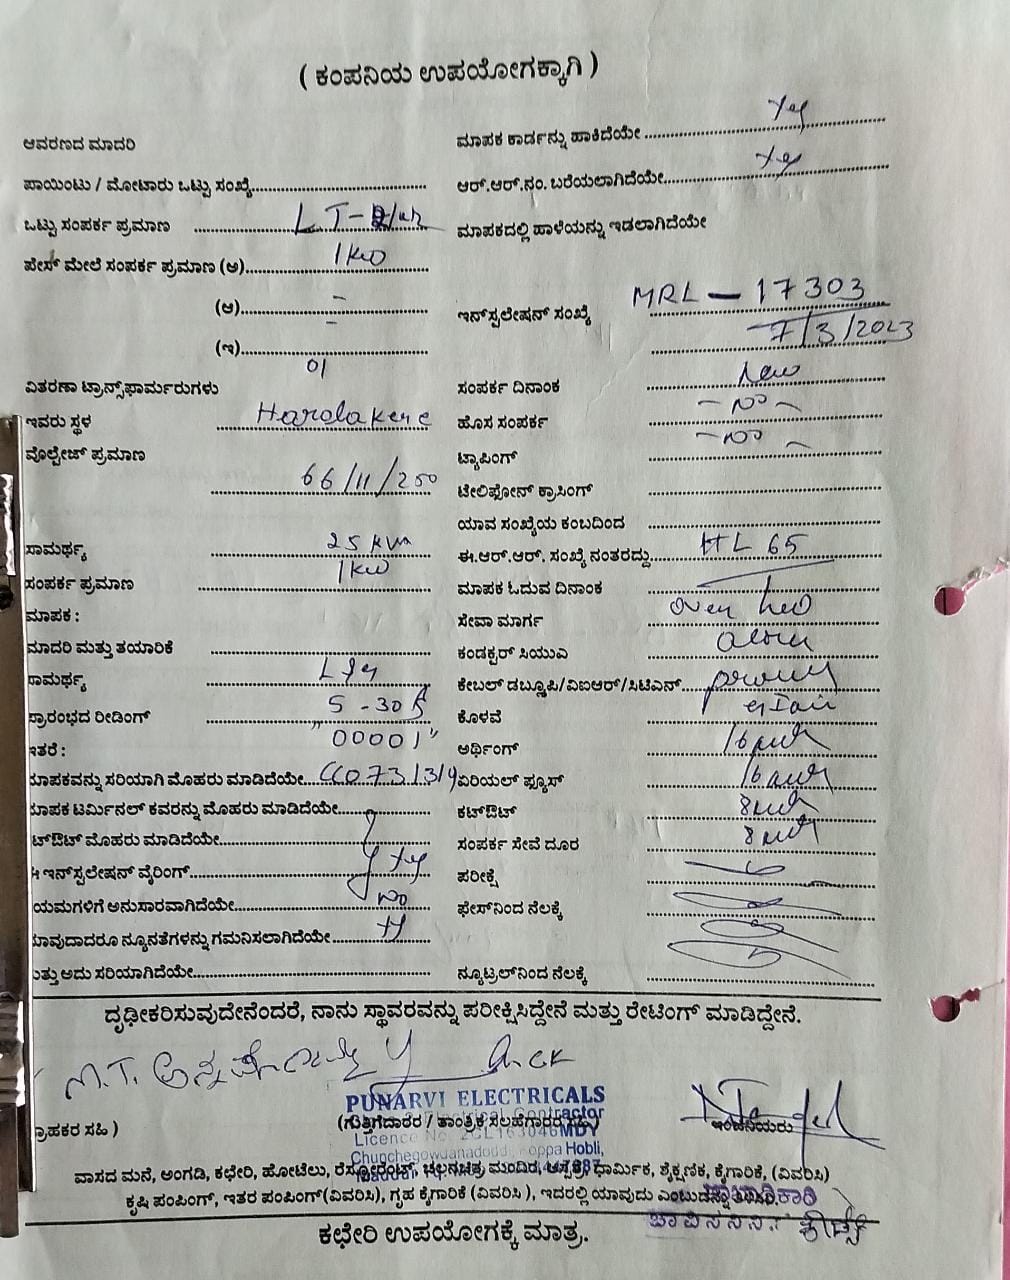 ( ಕಂಪನಿಯ ಉಪಯೋಗಕ್ಕಾಗಿ )
ಆವರಣದ ಮಾದರಿ
ಪಾಯಿಂಟು / ಮೋಟಾರು ಒಟ್ಟು ಸಂಖ್ಯೆ
ಒಟ್ಟು ಸಂಪರ್ಕ ಪ್ರಮಾಣ LT-
ಪೇಸ್ ಮೇಲೆ ಸಂಪರ್ಕ ಪ್ರಮಾಣ (ಅ) 1kw
(ಆ) –
(ಇ) –
01
ವಿತರಣಾ ಟ್ರಾನ್ಸ್‌ಫಾರ್ಮರುಗಳು
ಇವರು ಸ್ಥಳ Haralakere
ವೊಲ್ಟೇಜ್ ಪ್ರಮಾಣ
66/11/250
ಸಾಮರ್ಥ್ಯ 25 kva
ಸಂಪರ್ಕ ಪ್ರಮಾಣ 1kw
ಮಾಪಕ :
ಮಾದರಿ ಮತ್ತು ತಯಾರಿಕೆ
ಸಾಮರ್ಥ್ಯ
ಪ್ರಾರಂಭದ ರೀಡಿಂಗ್ 5-30A
ಇತರೆ : "00001"
ಮಾಪಕವನ್ನು ಸರಿಯಾಗಿ ಮೊಹರು ಮಾಡಿದೆಯೇ
ಮಾಪಕ ಟರ್ಮಿನಲ್ ಕವರನ್ನು ಮೊಹರು ಮಾಡಿದೆಯೇ
ಟ್‌ಔಟ್ ಮೊಹರು ಮಾಡಿದೆಯೇ
ಈ ಇನ್‌ಸ್ಪಲೇಷನ್ ವೈರಿಂಗ್ yes
ಯಮಗಳಿಗೆ ಅನುಸಾರವಾಗಿದೆಯೇ no
ಯಾವುದಾದರೂ ನ್ಯೂನತೆಗಳನ್ನು ಗಮನಿಸಲಾಗಿದೆಯೇ
ಮತ್ತು ಅದು ಸರಿಯಾಗಿದೆಯೇ
ಮಾಪಕ ಕಾರ್ಡನ್ನು ಹಾಕಿದೆಯೇ yes
ಆರ್.ಆರ್.ನಂ. ಬರೆಯಲಾಗಿದೆಯೇ yes
ಮಾಪಕದಲ್ಲಿ ಹಾಳೆಯನ್ನು ಇಡಲಾಗಿದೆಯೇ
ಇನ್‌ಸ್ಪಲೇಷನ್ ಸಂಖ್ಯೆ MRL – 17303
7/3/2023
ಸಂಪರ್ಕ ದಿನಾಂಕ New
ಹೊಸ ಸಂಪರ್ಕ – no –
ಟ್ಯಾಪಿಂಗ್ – no –
ಟೇಲಿಫೋನ್ ಕ್ರಾಸಿಂಗ್
ಯಾವ ಸಂಖ್ಯೆಯ ಕಂಬದಿಂದ
ಈ.ಆರ್.ಆರ್. ಸಂಖ್ಯೆ ನಂತರದ್ದು HL 65
ಮಾಪಕ ಓದುವ ದಿನಾಂಕ
ಸೇವಾ ಮಾರ್ಗ over hed
ಕಂಡಕ್ಟರ್ ಸಿಯುಎ
ಕೇಬಲ್ ಡಬ್ಲ್ಯೂಪಿ/ವಿಐಆರ್/ಸಿಟಿಎಸ್
ಕೊಳವೆ
ಅರ್ಥಿಂಗ್ 16
ಏರಿಯಲ್ ಫ್ಯೂಸ್ 16
ಕಟ್‌ಔಟ್ 8
ಸಂಪರ್ಕ ಸೇವೆ ದೂರ 8
ಪರೀಕ್ಷೆ
ಫೇಸ್‌ನಿಂದ ನೆಲಕ್ಕೆ
ನ್ಯೂಟ್ರಲ್‌ನಿಂದ ನೆಲಕ್ಕೆ
ದೃಢೀಕರಿಸುವುದೇನೆಂದರೆ, ನಾನು ಸ್ಥಾವರವನ್ನು ಪರೀಕ್ಷಿಸಿದ್ದೇನೆ ಮತ್ತು ರೇಟಿಂಗ್ ಮಾಡಿದ್ದೇನೆ.
M.T.
PUNARVI ELECTRICALS
ಗ್ರಾಹಕರ ಸಹಿ ) (ಗುತ್ತಿಗೆದಾರರ / ತಾಂತ್ರಿಕ ಸಲಹೆಗಾರರ ಸಹಿ) ಇಂಜಿನಿಯರು
Electrical Contractor
Licence No. MDY
Chunchegowdanadoddi, Koppa Hobli,
ವಾಸದ ಮನೆ, ಅಂಗಡಿ, ಕಛೇರಿ, ಹೋಟೆಲು, ರೆಸ್ಟೋರೆಂಟ್, ಚಲನಚಿತ್ರ ಮಂದಿರ, ಆಸ್ಪತ್ರೆ, ಧಾರ್ಮಿಕ, ಶೈಕ್ಷಣಿಕ, ಕೈಗಾರಿಕೆ, (ವಿವರಿಸಿ)
ಕೃಷಿ ಪಂಪಿಂಗ್, ಇತರ ಪಂಪಿಂಗ್(ವಿವರಿಸಿ), ಗೃಹ ಕೈಗಾರಿಕೆ (ವಿವರಿಸಿ ), ಇದರಲ್ಲಿ ಯಾವುದು ಎಂಬುದನ್ನು ತಿಳಿಸಿರಿ.
ಕಛೇರಿ ಉಪಯೋಗಕ್ಕೆ ಮಾತ್ರ.